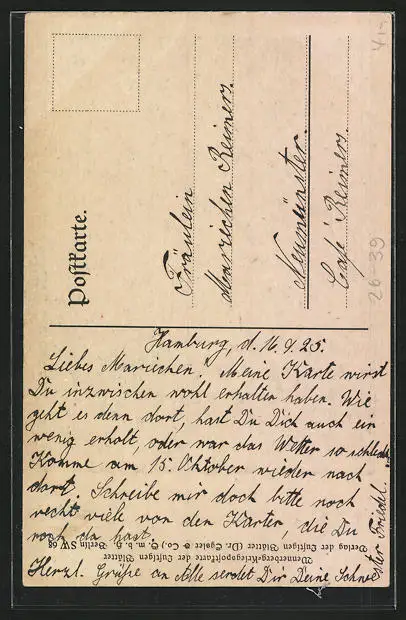 Postkarte.
Fräulein
Mariechen Reimers
Neumünster.
Café Reimers
Hamburg, d. 16.9.25.
Liebes Mariechen! Meine Karte wirst
Du inzwischen wohl erhalten haben. Wie
geht es denn dort, hast Du Dich auch ein
wenig erholt, oder war das Wetter so schlecht.
Komme am 15. Oktober wieder nach
dort. Schreibe mir doch bitte noch
recht viele von den Karten, die Du
noch da hast.
Herzl. Grüße an Alle sendet Dir Deine Schwe
ster Friedel.
Wennerberg-Kriegspostkarte der Lustigen Blätter
Verlag der Lustigen Blätter (Dr. Eysler & Co.), G. m. b. H. Berlin SW 68
26-39